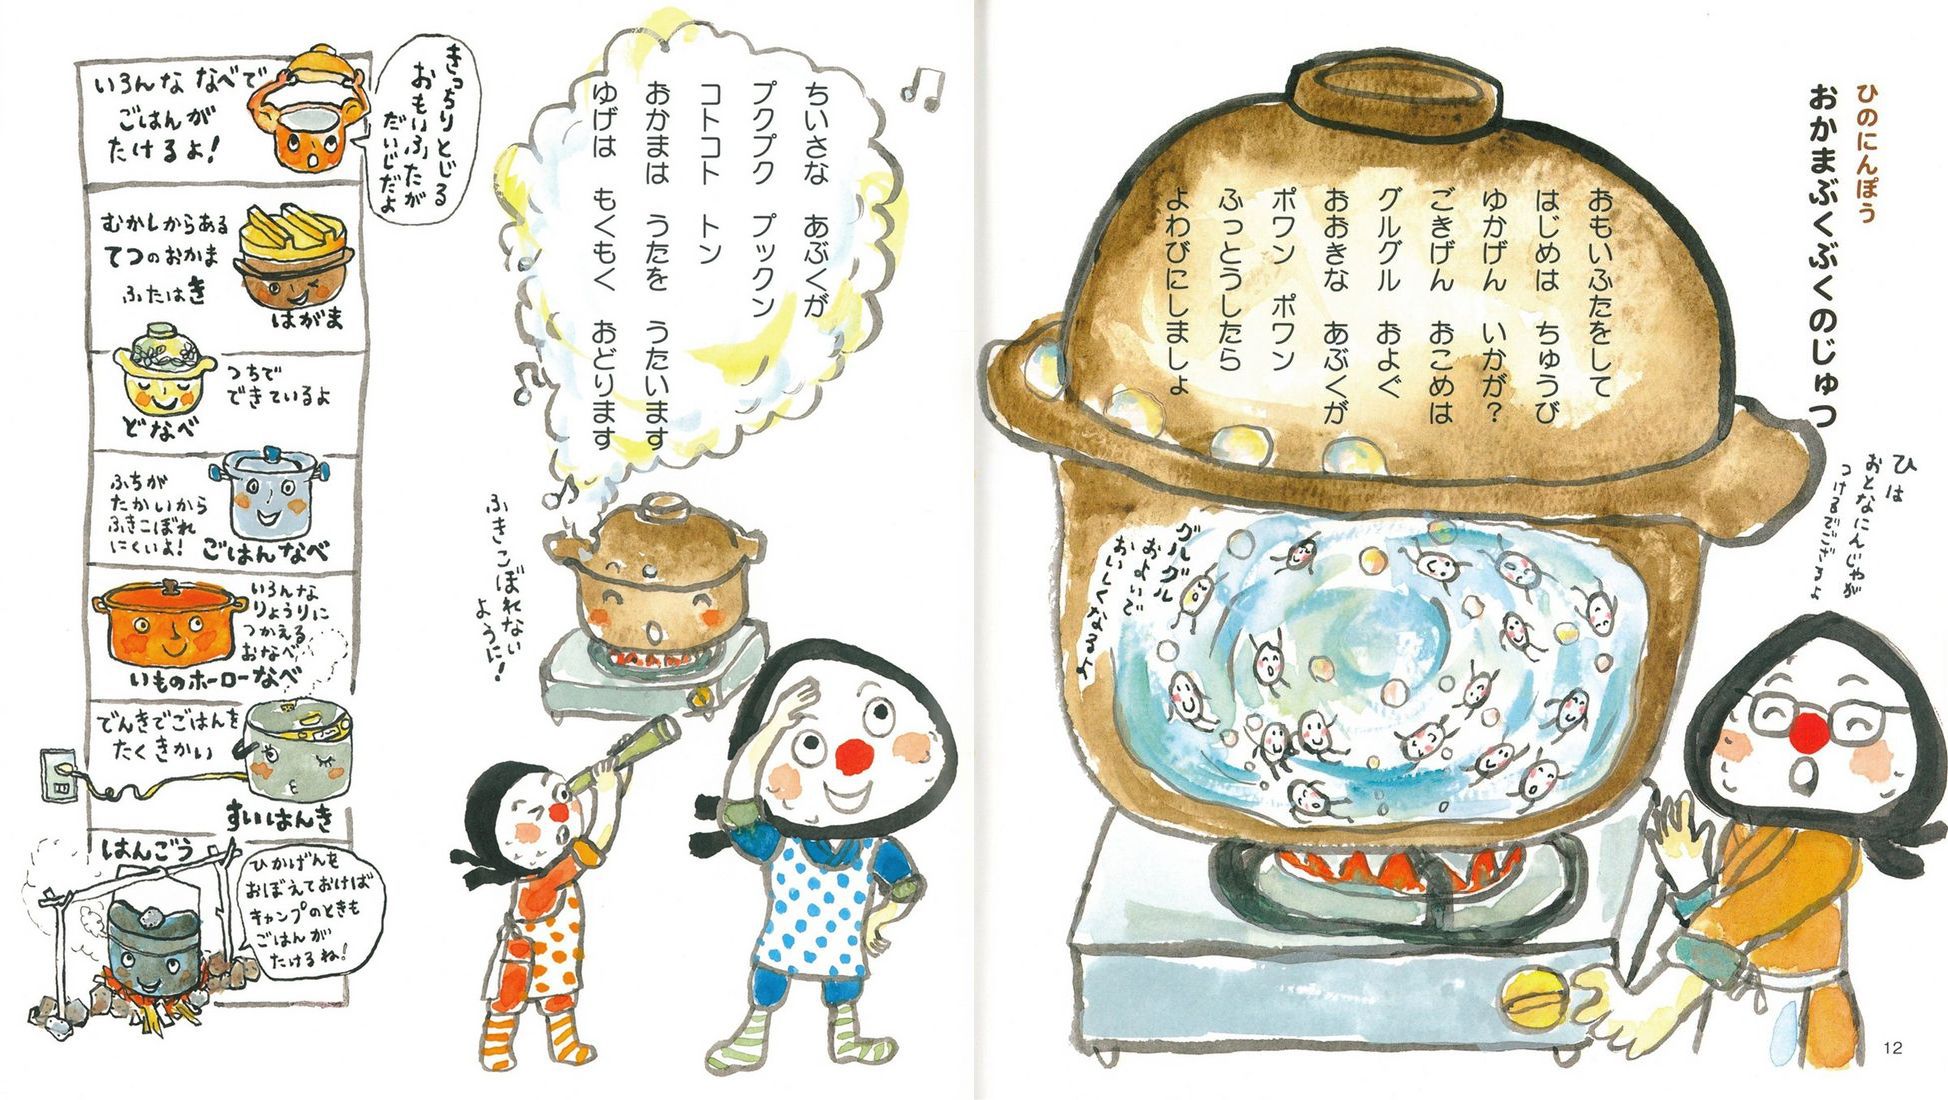 ひのにんぽう
おかまぶくぶくのじゅつ
おもいふたをして
はじめは　ちゅうび
ゆかげん　いかが？
ごきげん　おこめは
グルグル　およぐ
おおきな　あぶくが
ポワン　ポワン
ふっとうしたら
よわびにしましょ
ひは
おとなにんじゃが
つけるでござるよ
グルグル
およいで
おいしくなるよ
12
ちいさな　あぶくが
プクプク　プックン
コトコト　トン
おかまは　うたを　うたいます
ゆげは　もくもく　おどります
ふきこぼれない
ように！
きっちりとじる
おもいふたが
だいじだよ
いろんな なべで
ごはんが
たけるよ！
むかしからある
てつのおかま
ふたはき
はがま
つちで
できているよ
どなべ
ふちが
たかいから
ふきこぼれ
にくいよ！
ごはんなべ
いろんな
りょうりに
つかえる
おなべ
いものホーローなべ
でんきでごはんを
たくきかい
すいはんき
はんごう
ひかげんを
おぼえておけば
キャンプのときも
ごはんが
たけるね！